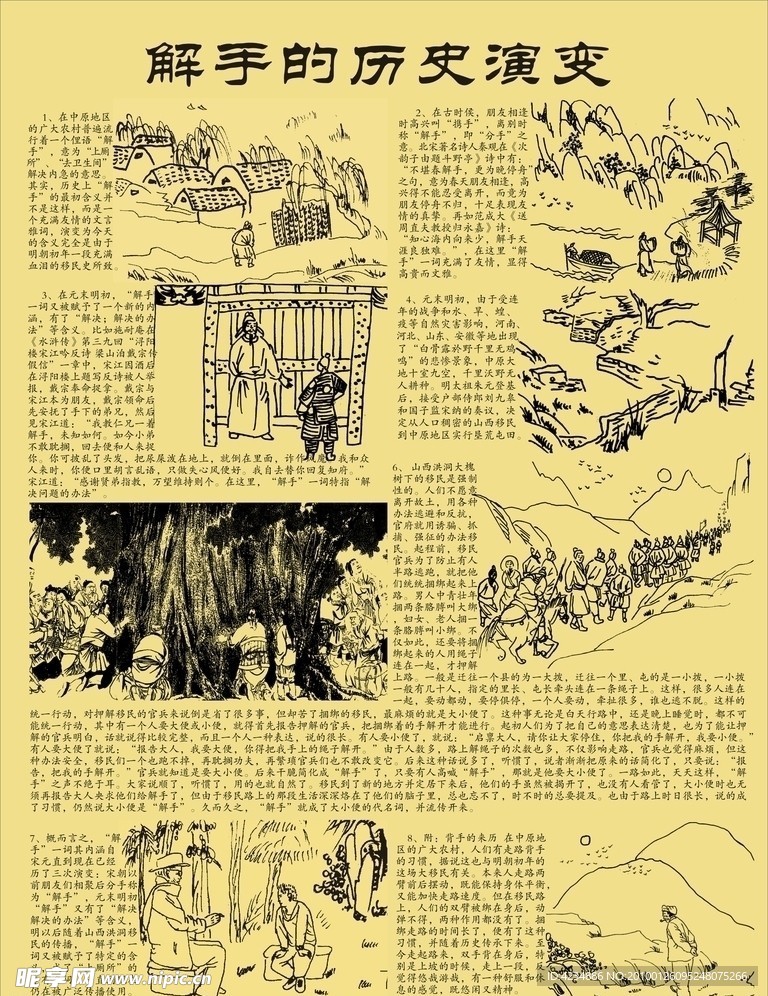 解手的历史演变
1、在中原地区
的广大农村普遍流
行着一个俚语“解
手”，意为“上厕
所”、“去卫生间”
解决内急的意思。
其实，历史上“解
手”的最初含义并
不是这样，而是一
个充满友情的文言
雅词，演变为今天
的含义完全是由于
明朝初年一段充满
血泪的移民史所致。
2、在古时侯，朋友相逢
时高兴叫“携手”，离别时
称“解手”，即“分手”之
意。北宋著名诗人秦观在《次
韵子由题斗野亭》诗中有：
“不堪春解手，更为晚停舟”
之句，意为春天朋友相逢，高
兴得不能忍受离开，而竟为
朋友停舟不归，十足表现友
情的真挚。再如范成大《送
周直夫教授归永嘉》诗：
“知心海内向来少，解手天
涯良独难。”，在这里“解
手”一词充满了友情，显得
高贵而文雅。
3、在元末明初，“解手
一词又被赋予了一个新的内
涵，有了“解决；解决的办
法”等含义。比如施耐庵在
《水浒传》第三九回“浔阳
楼宋江吟反诗 梁山泊戴宗传
假信”一章中，宋江因酒后
在浔阳楼上题写反诗被人举
报，戴宗奉命捉拿。戴宗与
宋江本为朋友，戴宗领命后
先安抚了手下的弟兄，然后
见宋江道：“我教仁兄一着
解手，未知如何。如今小弟
不敢耽搁，回去便和人来捉
你。你可披乱了头发，把尿屎泼在地上，就倒在里面，诈作风魔。我和众
人来时，你便口里胡言乱语，只做失心风便好。我自去替你回复知府。”
宋江道：“感谢贤弟指教，万望维持则个。在这里，“解手”一词特指“解
决问题的办法”。
4、元末明初，由于受连
年的战争和水、旱、蝗、
疫等自然灾害影响，河南、
河北、山东、安徽等地出现
了“白骨露於野千里无鸡
鸣”的悲惨景象，中原大
地十室九空，千里沃野无
人耕种。明太祖朱元登基
后，接受户部侍郎刘九皋
和国子监宋纳的奏议，决
定从人口稠密的山西移民
到中原地区实行垦荒屯田。
6、 山西洪洞大槐
树下的移民是强制
性的。人们不愿意
离开故土，用各种
办法逃避和反抗，
官府就用诱骗、抓
捕、强征的办法移
民。起程前，移民
官兵为了防止有人
半路逃跑，就把他
们统统捆绑起来上
路。男人中青壮年
捆两条胳膊叫大绑
，妇女、老人捆一
条胳膊叫小绑。不
仅如此，还要将捆
绑起来的人用绳子
连在一起，才押解
上路。一般是迁往一个县的为一大拨，迁往一个里、屯的是一小拨，一小拨
一般有几十人，指定的里长、屯长牵头连在一条绳子上。这样，很多人连在
一起，要动都动，要停俱停，一个人要动，牵扯很多，谁也逃不脱。这样的
统一行动，对押解移民的官兵来说倒是省了很多事，但却苦了捆绑的移民，最麻烦的就是大小便了。这种事无论是白天行路中，还是晚上睡觉时，都不可
能统一行动，其中有一个人要大便或小便，就得首先报告押解的官兵，把捆绑着的手解开才能进行。起初人们为了把自己的意思表达清楚，也为了能让押
解的官兵明白，话就说得比较完整，而且一个人一种表达，说的很长。有人要小便了，就说：“启禀大人，请你让大家停住，你把我的手解开，我要小便。”
有人要大便了就说：“报告大人，我要大便，你得把我手上的绳子解开。”由于人数多，路上解绳子的次数也多，不仅影响走路，官兵也觉得麻烦，但这
种办法安全，移民们一个也跑不掉，再耽搁功夫，再繁琐官兵们也不敢改变它。后来这种话说多了，听惯了，说者渐渐把原来的话简化了，只要说：“报
告，把我的手解开。”官兵就知道是要大小便。后来干脆简化成“解手”了，只要有人高喊“解手”，那就是他要大小便了。一路如此，天天这样，“解
手”之声不绝于耳。大家说顺了，听惯了，用的也就自然了。移民到了新的地方并定居下来后，他们的手虽然被揭开了，也没有人看管了，大小便时也无
须再报告大人央求他们给解手了，但由于移民路上的那段生活深深烙在了他们的脑子里，总也忘不了，时不时的总要提及。也由于路上时日很长，说的成
了习惯，仍然说大小便是“解手”。久而久之，“解手”就成了大小便的代名词，并流传开来。
7、概而言之，“解
手”一词其内涵自
宋元直到现在已经
历了三次演变；宋朝以
前朋友们相聚后分手称
为“解手”，元末明初
“解手”又有了“解决
解决的办法”等含义，
明以后随着山西洪洞移
民的传播，“解手”一
词又被赋予了特定的含
8、附：背手的来历 在中原地
区的广大农村，人们有走路背手
的习惯，据说这也与明朝初年的
这场大移民有关。本来人走路两
臂前后摆动，既能保持身体平衡，
又能加快走路速度。但在移民路
上，人们的双臂被绑在身后，动
弹不得，两种作用都没有了。捆
绑走路的时间长了，便有了这种
习惯，并随着历史传承下来。至
今走起路来，双手背在身后，特
别是上坡的时候，走上一段，反
觉得悠哉游哉，有一种舒缓和休
息的感觉，既悠闲又精神。
昵享网 www.nipic.cn